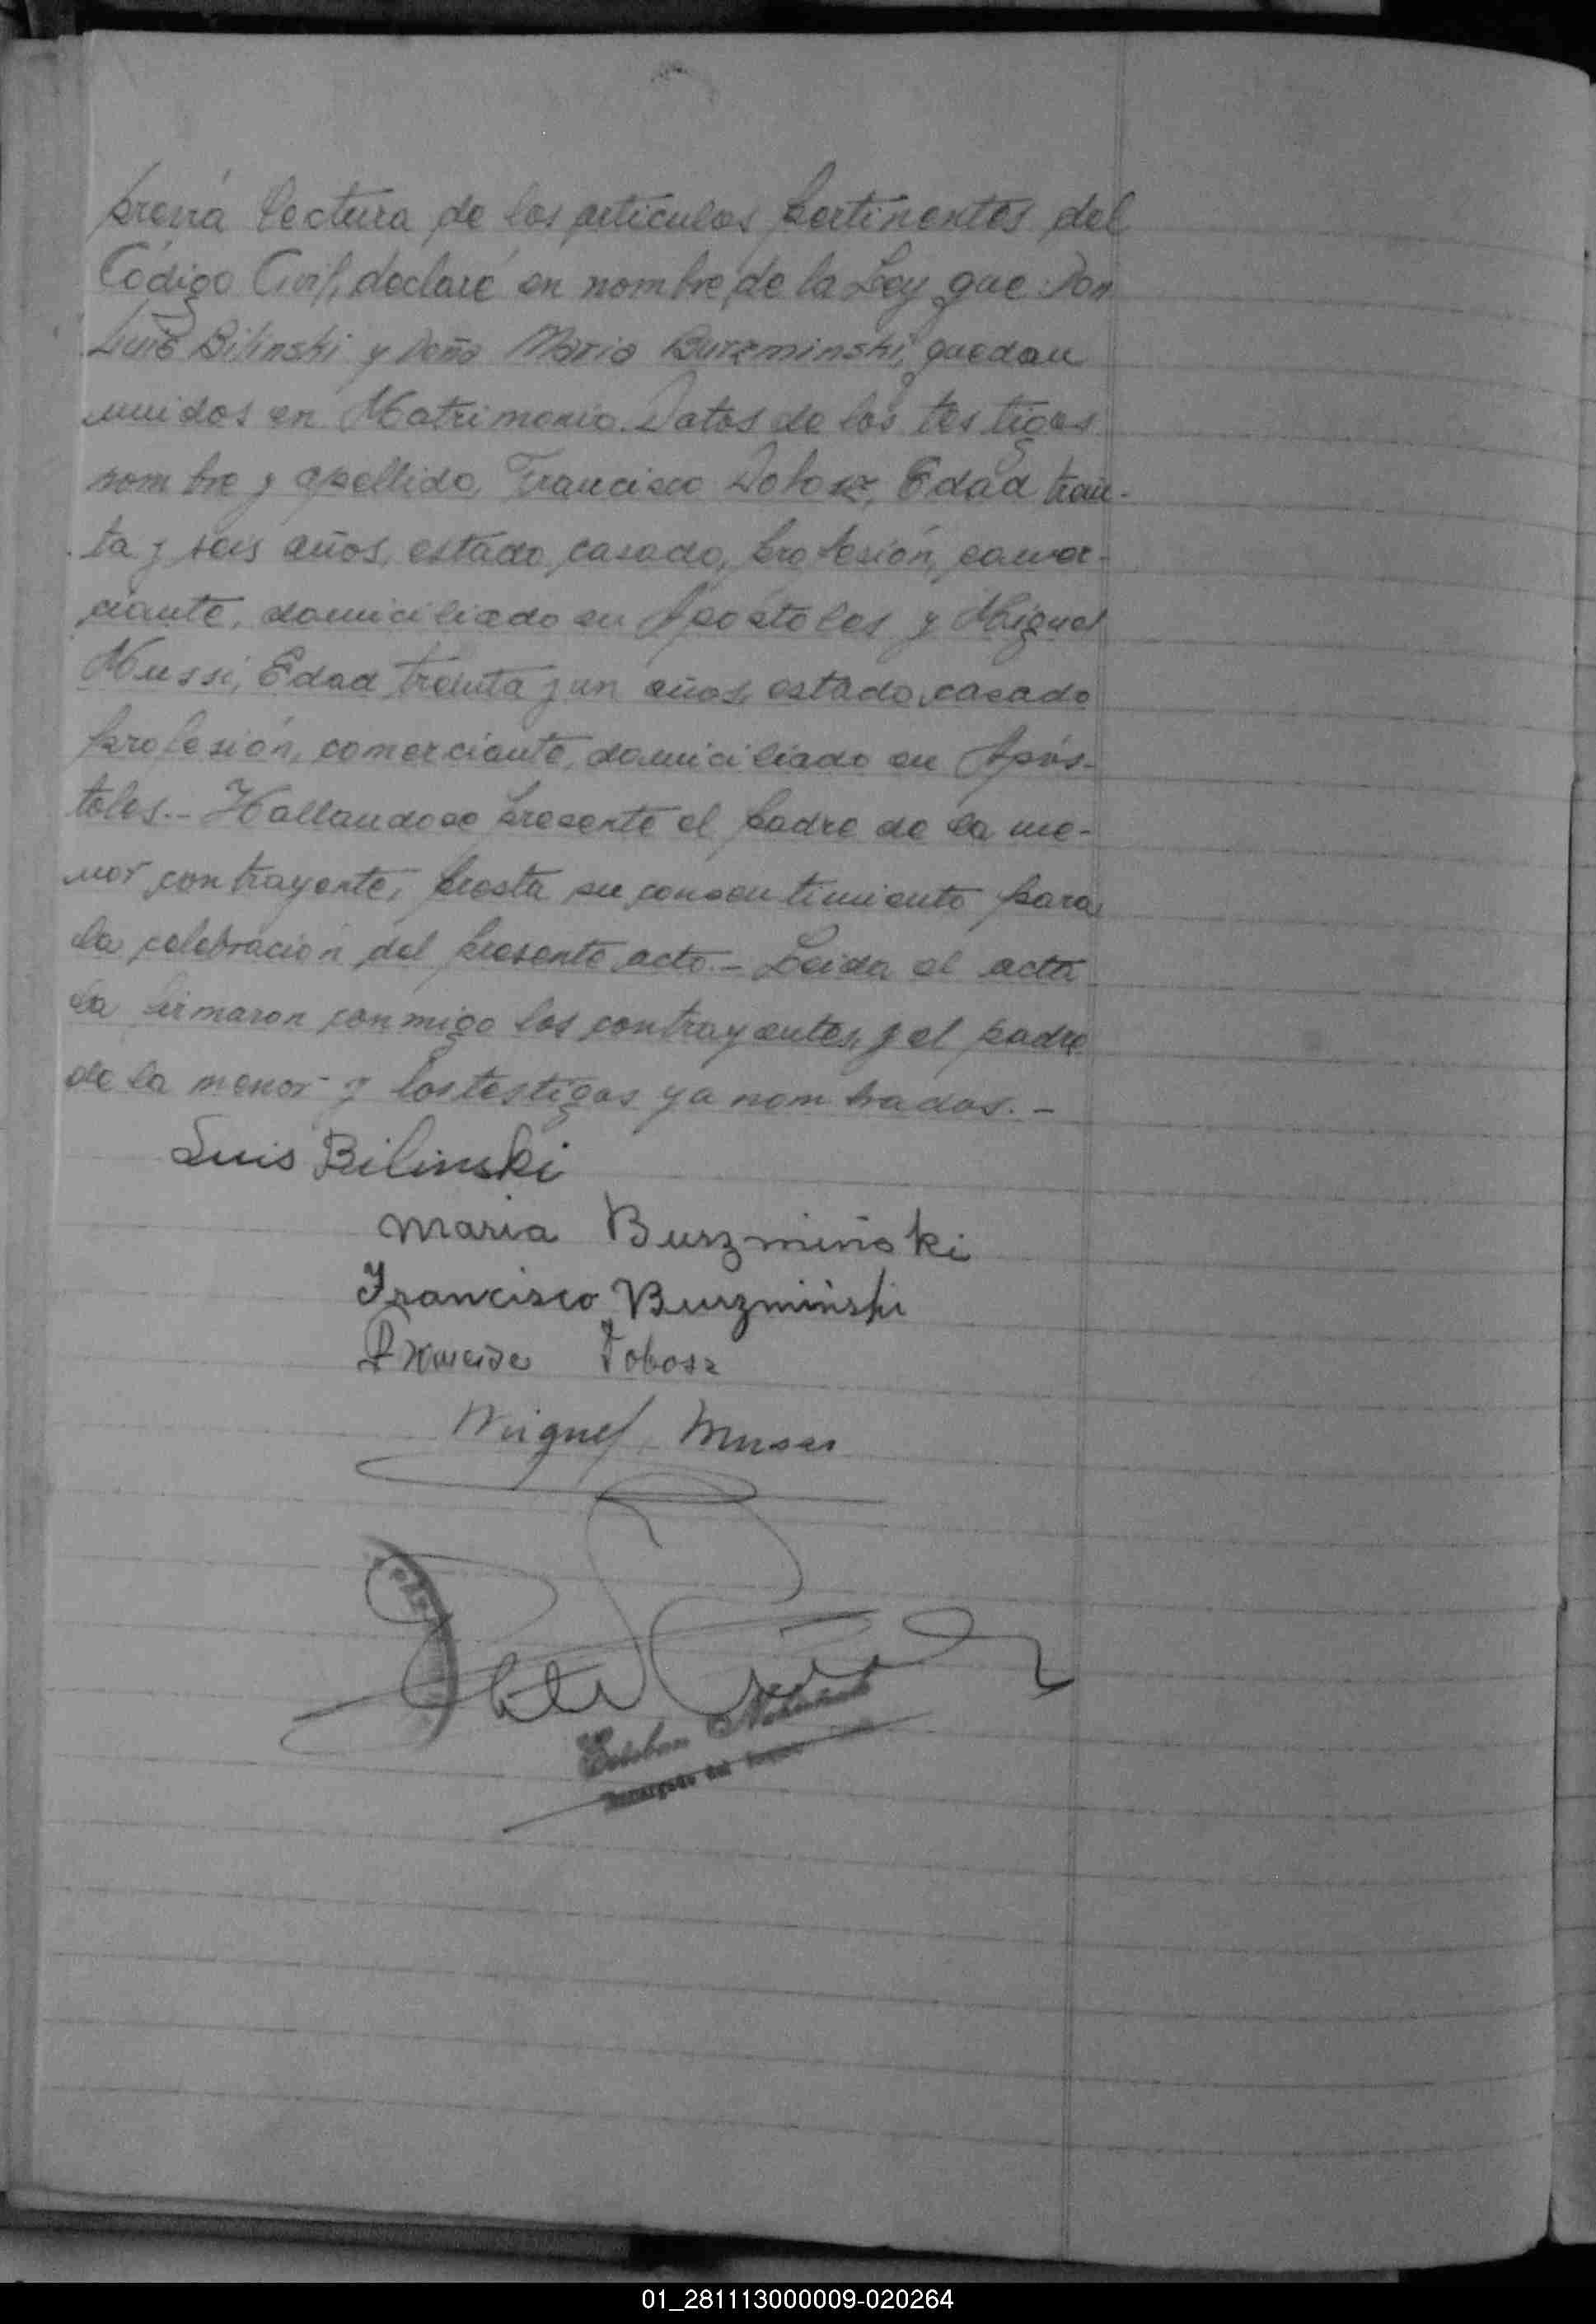 previá lectura de los artículos pertinentes del
Código Civil, declaré en nombre de la Ley que Don
Luis Bilinski y Doña Maria Burzminski, quedan
unidos en Matrimonio. Datos de los testigos
nombre y apellido, Francisco Dobosz, Edad trein-
ta y seis años, estado, casado, profesión, comer-
ciante, domiciliado en Apóstoles y Miguel
Mussi, Edad treinta y un años, estado, casado
profesión, comerciante, domiciliado en Após-
toles.- Hallandose presente el padre de la me-
nor contrayente, presta su consentimiento para
la celebración del presente acto.- Leida el acta
la firmaron conmigo los contrayentes, y el padre
de la menor y los testigos ya nombrados.-
Luis Bilinski
Maria Burzminski
Francisco Burzmiński
Dobosz
Miguel Mussi
Esteban
Encargado del
01_281113000009-020264